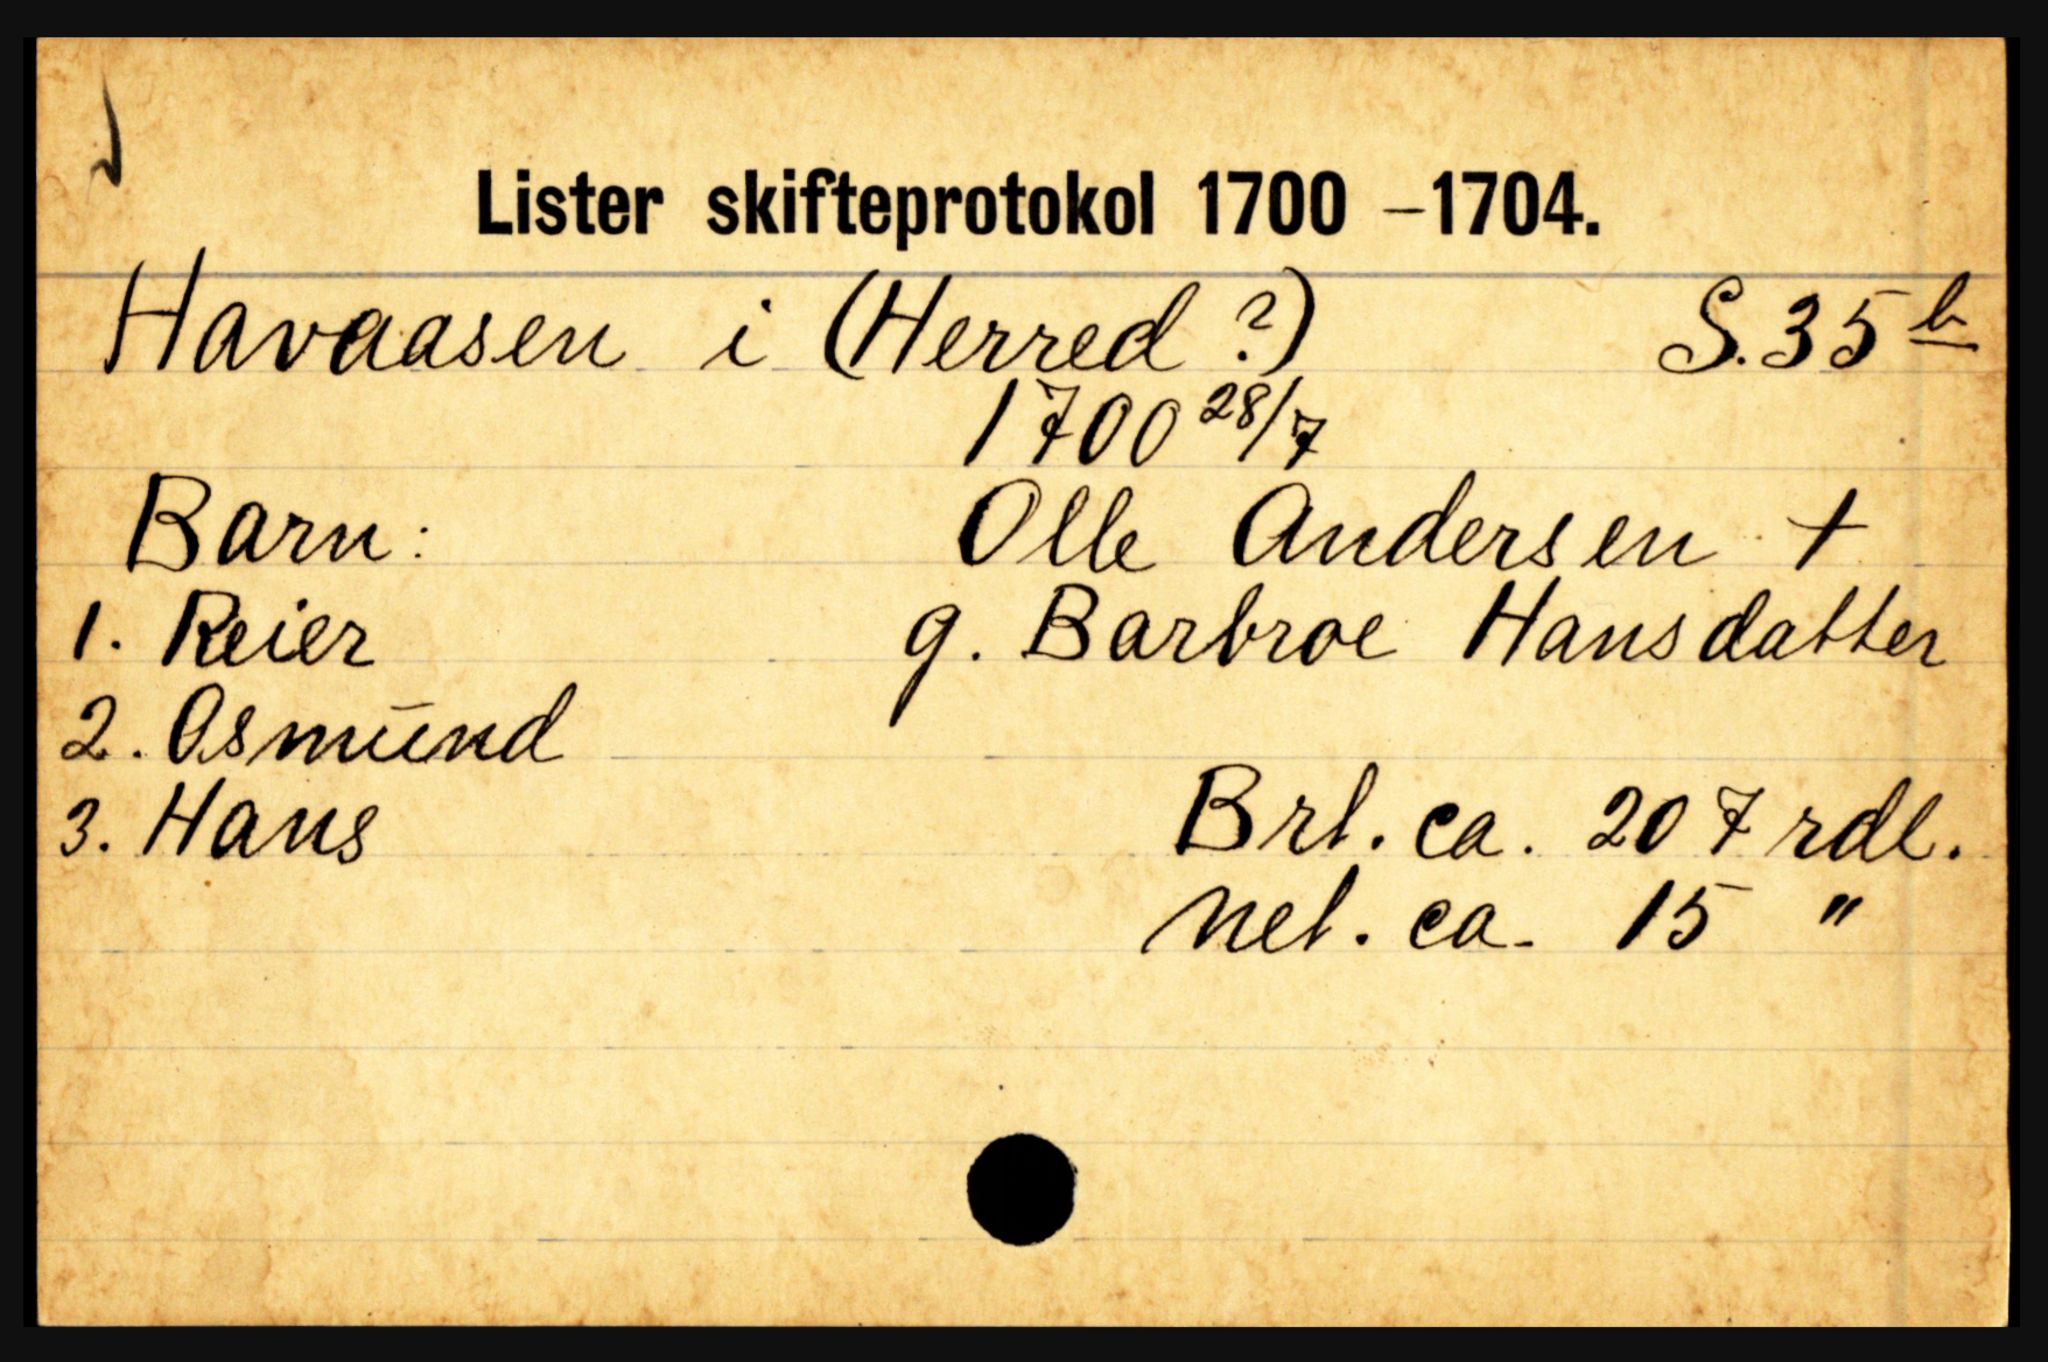 Lister skifteprotokol 1700 – 1704.
Havaasen i (Herred ?) S. 35 b
1700 28/7
Barn: Olle Andersen +
1. Reier g. Barbroe Hansdatter
2. Osmund
3. Hans Brt. ca. 207 rdl.
net. ca. 15 "